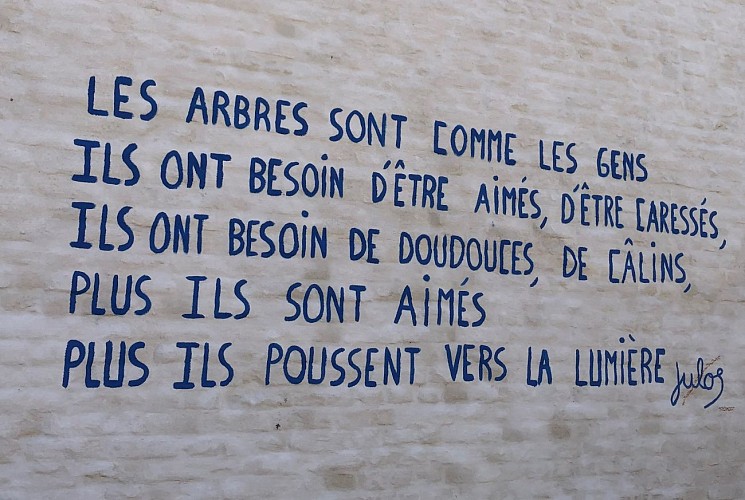 LES ARBRES SONT COMME LES GENS
ILS ONT BESOIN D'ÊTRE AIMÉS, D'ÊTRE CARESSÉS,
ILS ONT BESOIN DE DOUDOUCES, DE CÂLINS,
PLUS ILS SONT AIMÉS
PLUS ILS POUSSENT VERS LA LUMIÈRE
Julos